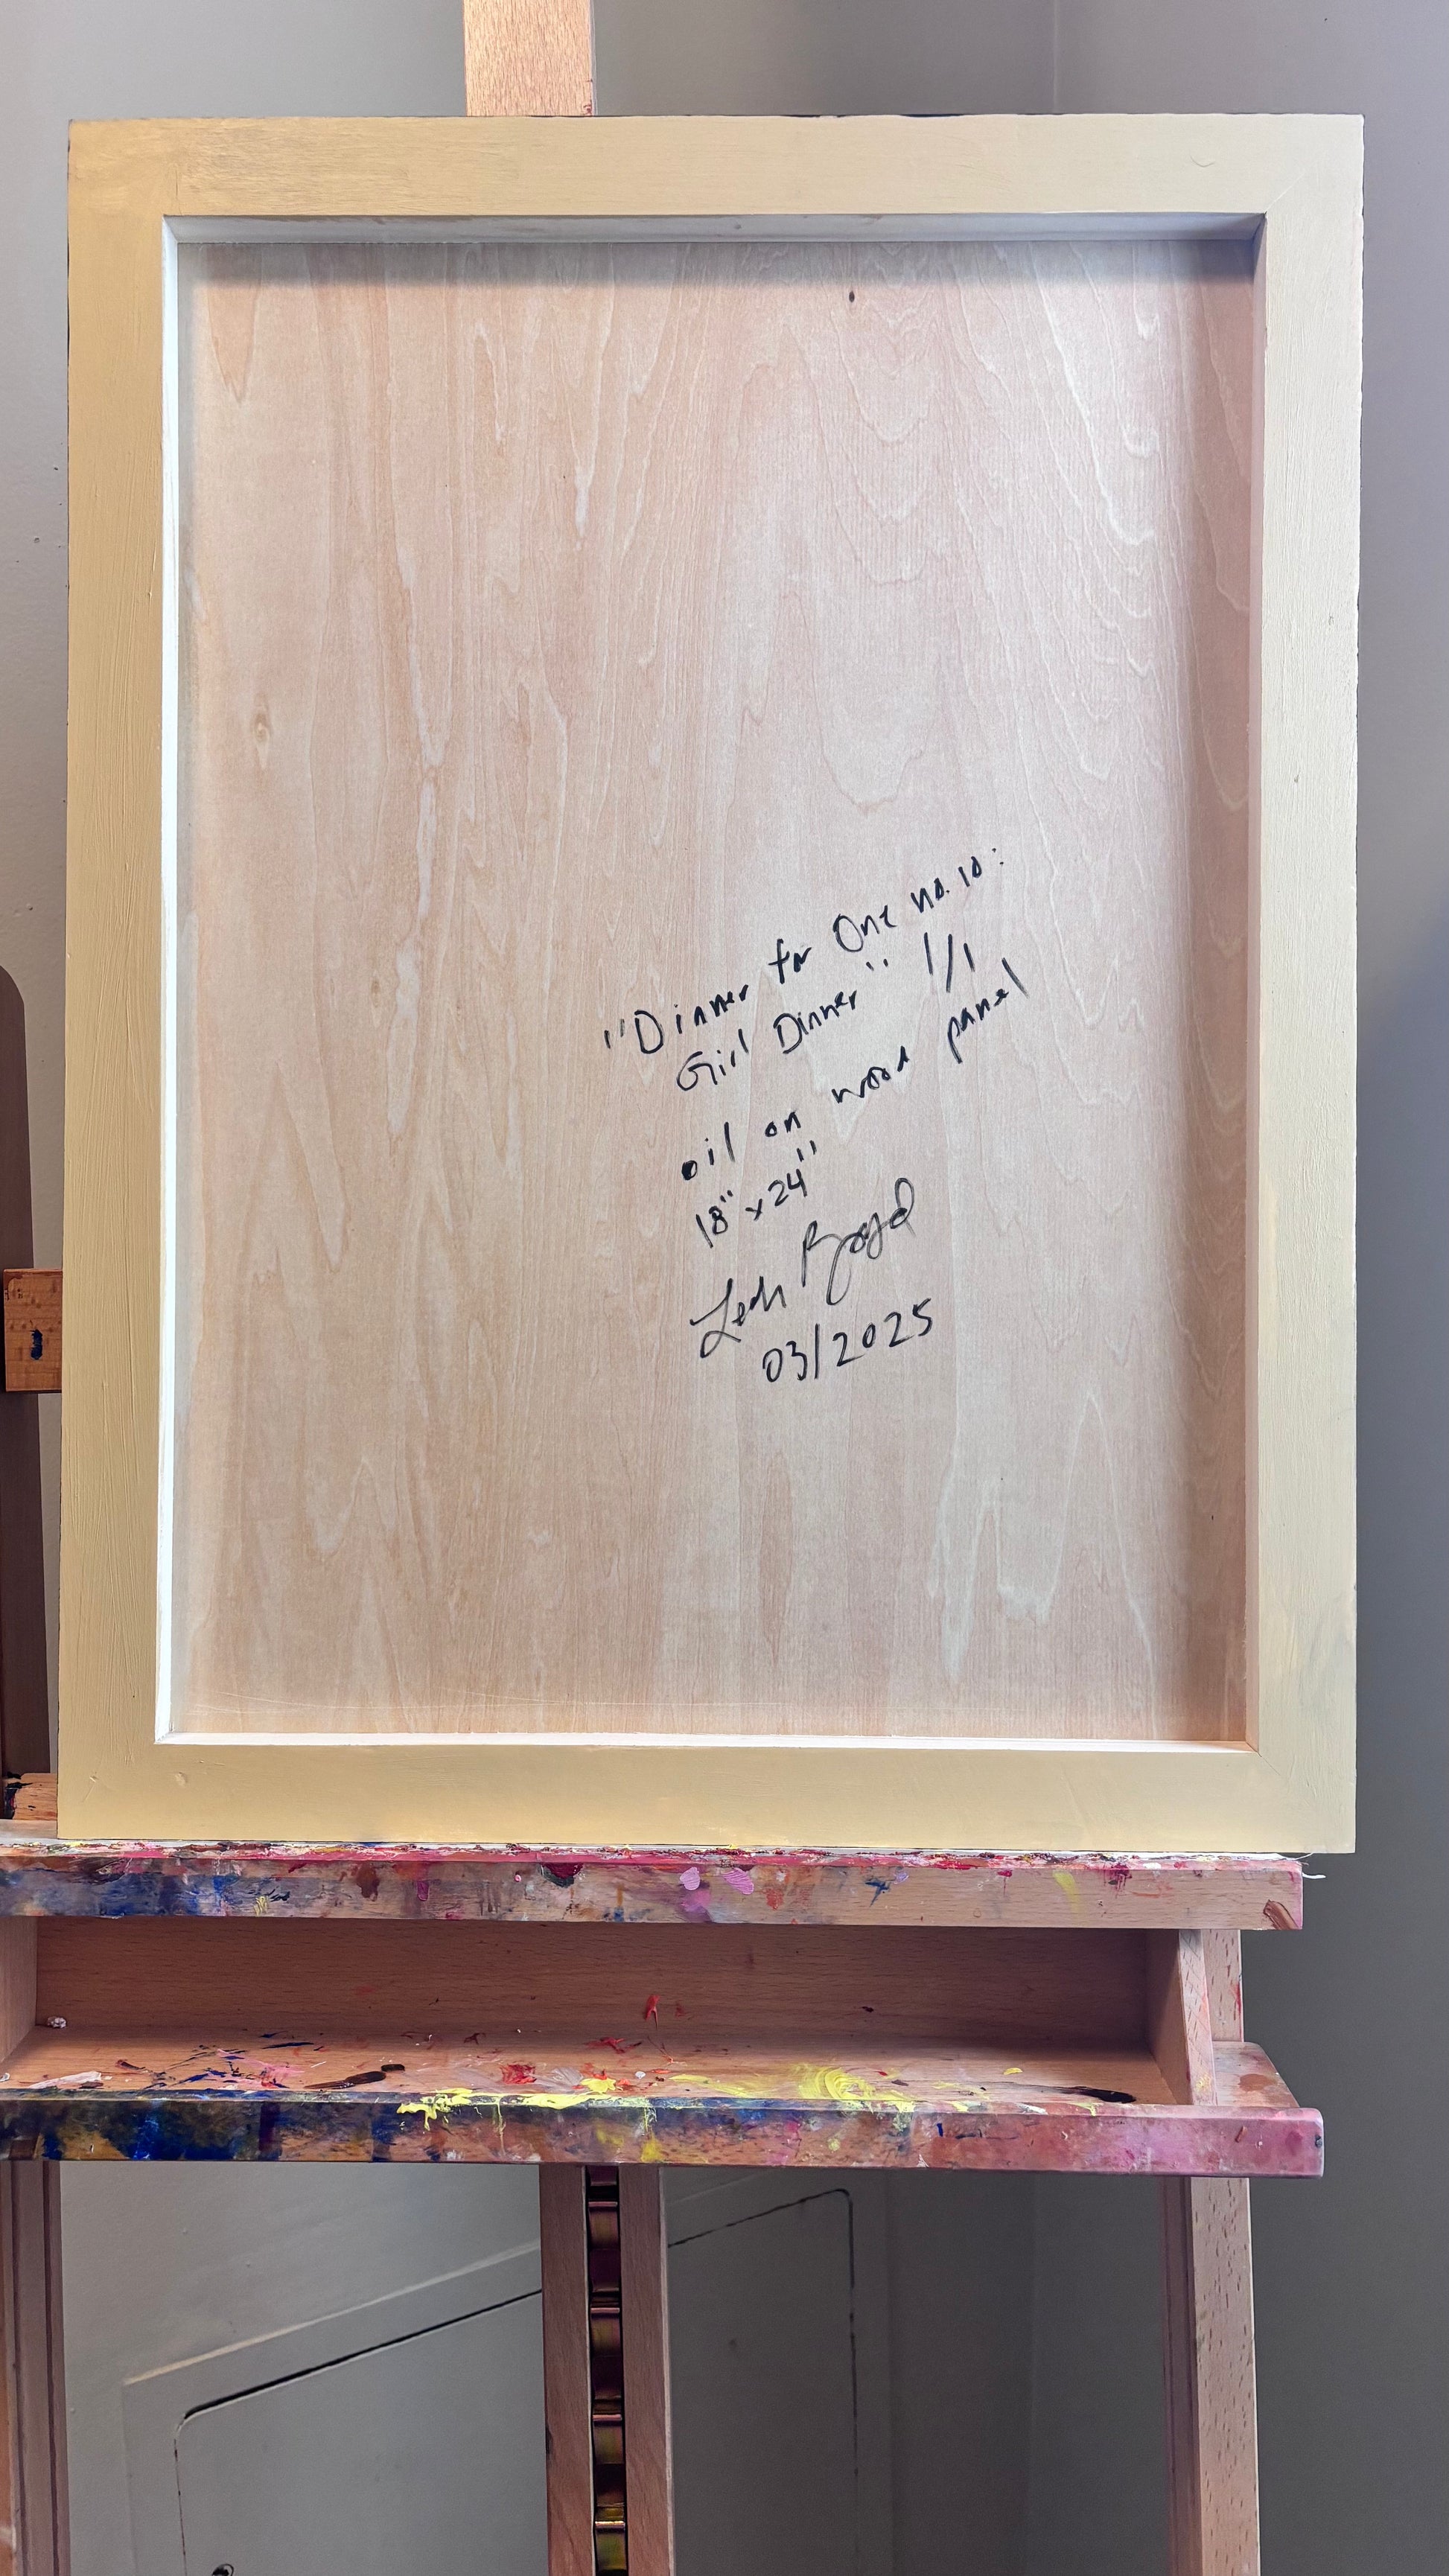 "Dinner for One no. 10:
Girl Dinner" 1/1
oil on wood panel
18" x 24"
Leah Boyd
03/2025